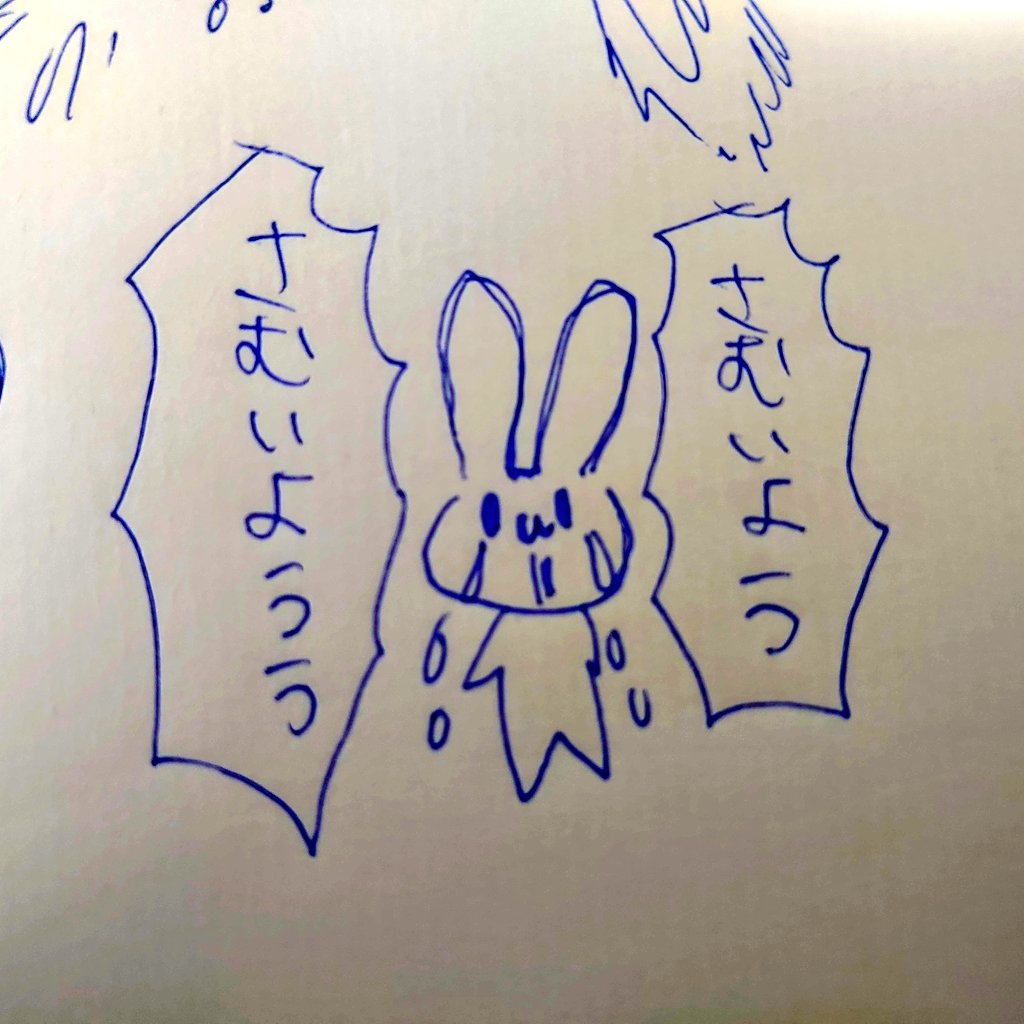 さむいよう
さむいようう